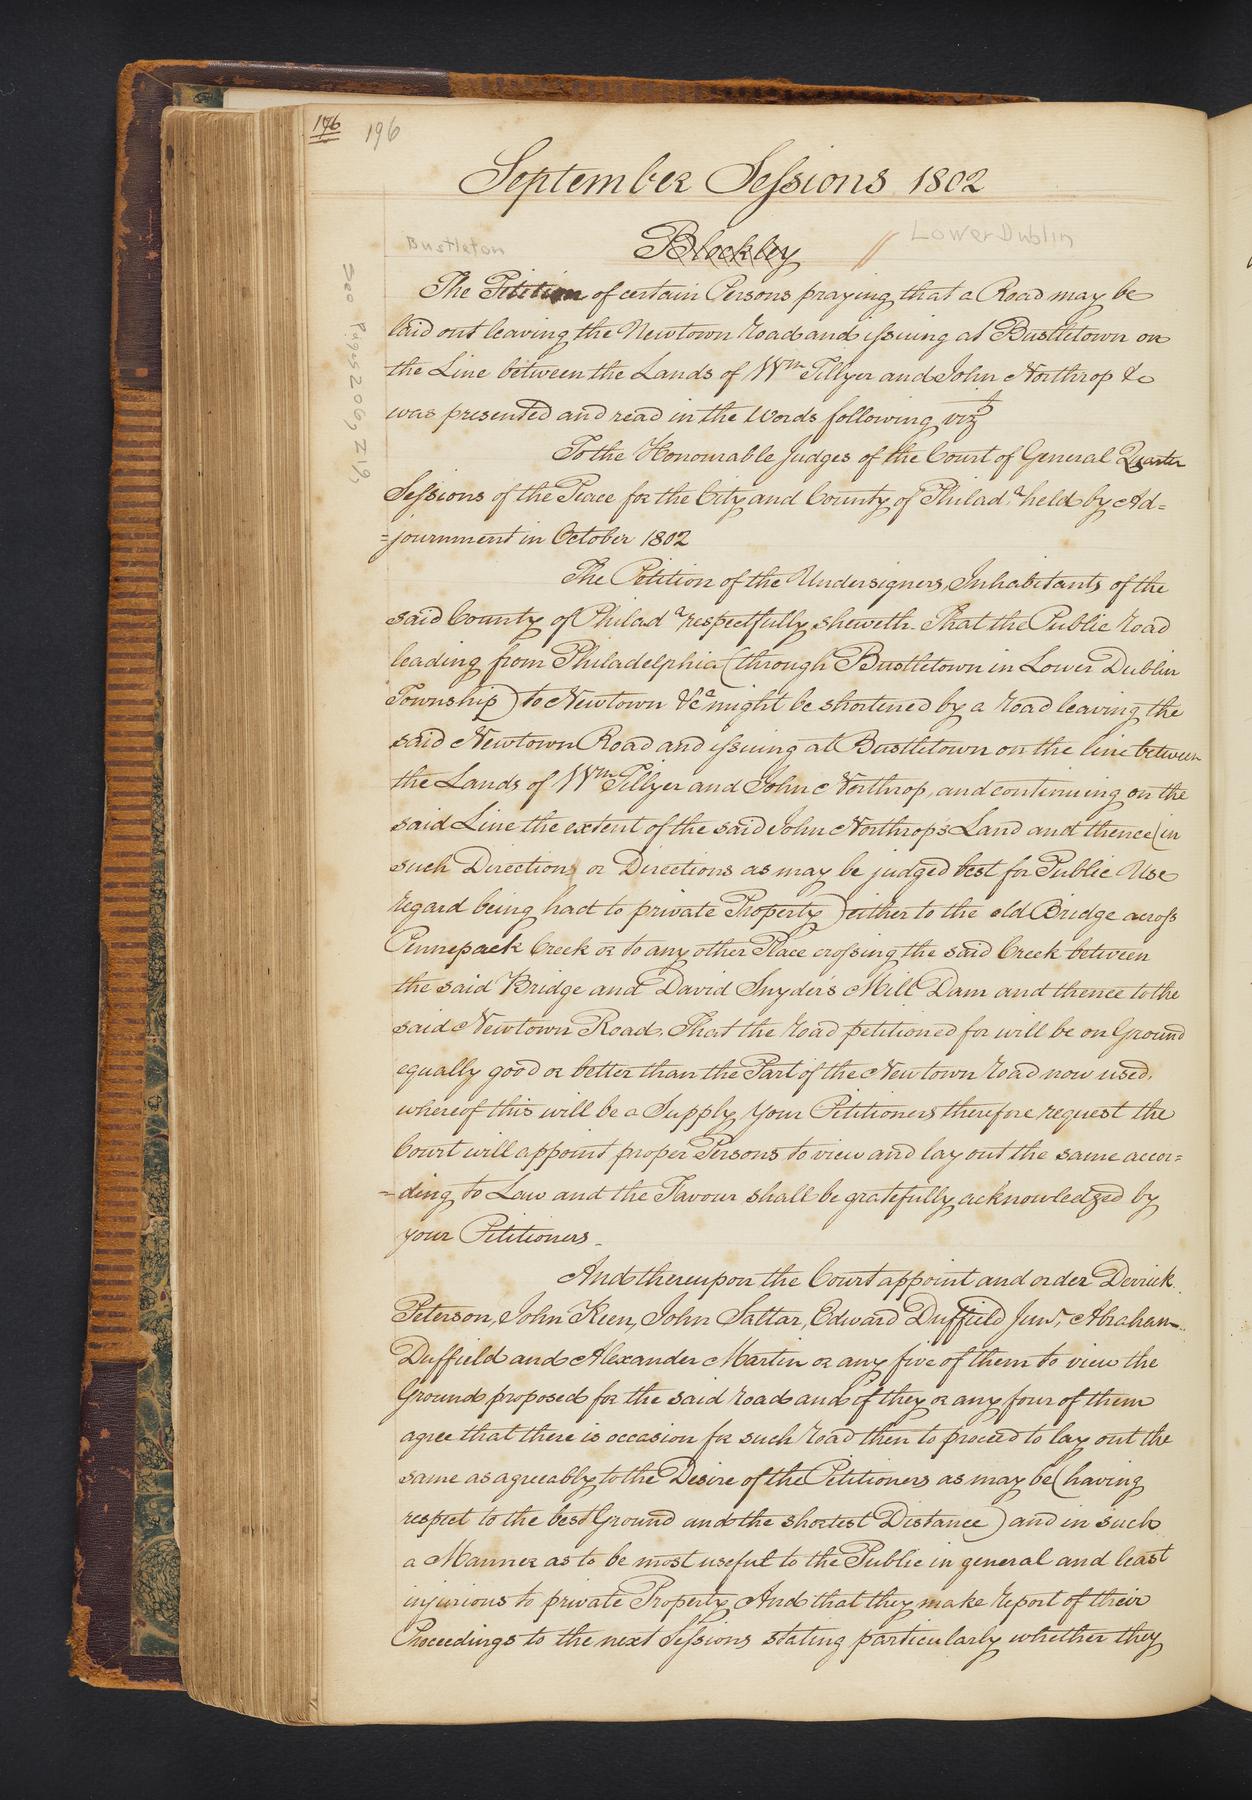 176 196
September Sessions 1802
Blockley
Bustleton
Lower Dublin
See Pages 206, 219,
The Petition of certain Persons praying that a Road may be
laid out leaving the Newtown road and issuing at Bustletown on
the Line between the Lands of Wm Tillyer and John Northrop &c
was presented and read in the Words following vizt
To the Honourable Judges of the Court of General Quarter
Sessions of the Peace for the City and County of Philada held by Ad=
=journment in October 1802
The Petition of the Undersigners, Inhabitants of the
said County of Philada respectfully sheweth That the Public road
leading from Philadelphia (through Bustletown in Lower Dublin
Township) to Newtown &ca might be shortened by a road leaving the
said Newtown Road and issuing at Bustletown on the line between
the Lands of Wm Tillyer and John Northrop, and continuing on the
said Line the extent of the said John Northrop's Land and thence (in
such Direction or Directions as may be judged best for Public Use
regard being had to private Property) either to the old Bridge across
Pennepack Creek or to any other Place crossing the said Creek between
the said Bridge and David Snyder's Mill Dam and thence to the
said Newtown Road. That the road petitioned for will be on Ground
equally good or better than the Part of the Newtown road now used,
whereof this will be a Supply, your Petitioners therefore request the
Court will appoint proper Persons to view and lay out the same accor=
=ding to Law and the Favour shall be gratefully acknowledged by
your Petitioners_
And thereupon the Court appoint and order Derrick
Peterson, John Keen, John Sattar, Edward Duffield Junr, Abraham
Duffield and Alexander Martin or any five of them to view the
Ground proposed for the said road and if they or any four of them
agree that there is occasion for such road then to proceed to lay out the
same as agreeably to the Desire of the Petitioners as may be (having
respect to the best Ground and the shortest Distance) and in such
a Manner as to be most useful to the Public in general and least
injurious to private Property And that they make report of their
Proceedings to the next Sessions stating particularly whether they